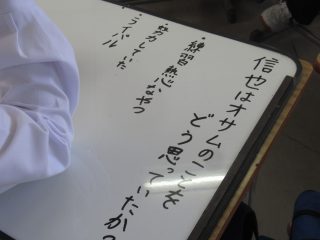 信也はオサムのことを
どう思っていたかっ
・練習熱心なやつ
・努力していた
・ライバル